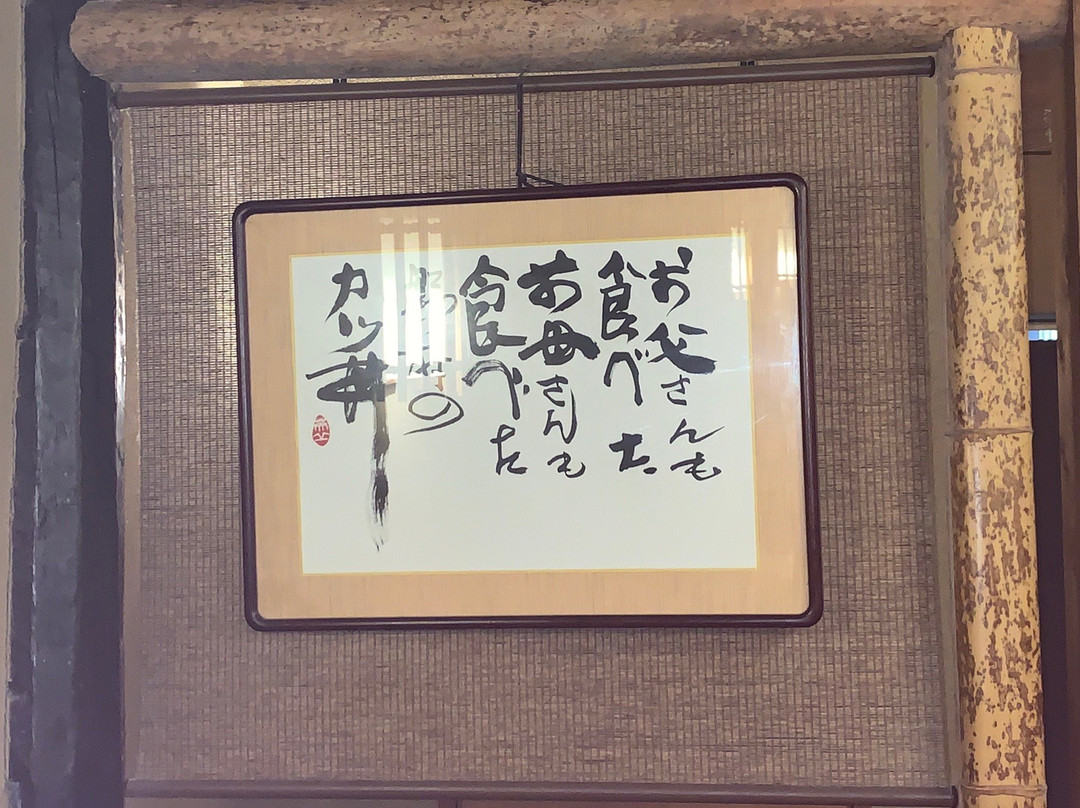 お父さんも
食べた
お母さんも
食べた
の
カツ丼